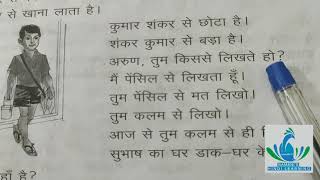 से खाना लाता है।
कुमार शंकर से छोटा है।
शंकर कुमार से बड़ा है।
अरुण, तुम किससे लिखते हो?
मैं पेंसिल से लिखता हूँ।
तुम पेंसिल से मत लिखो।
तुम कलम से लिखो।
आज से तुम कलम से ही
सुभाष का घर डाक-घर के
है?
HINDI LEARNING